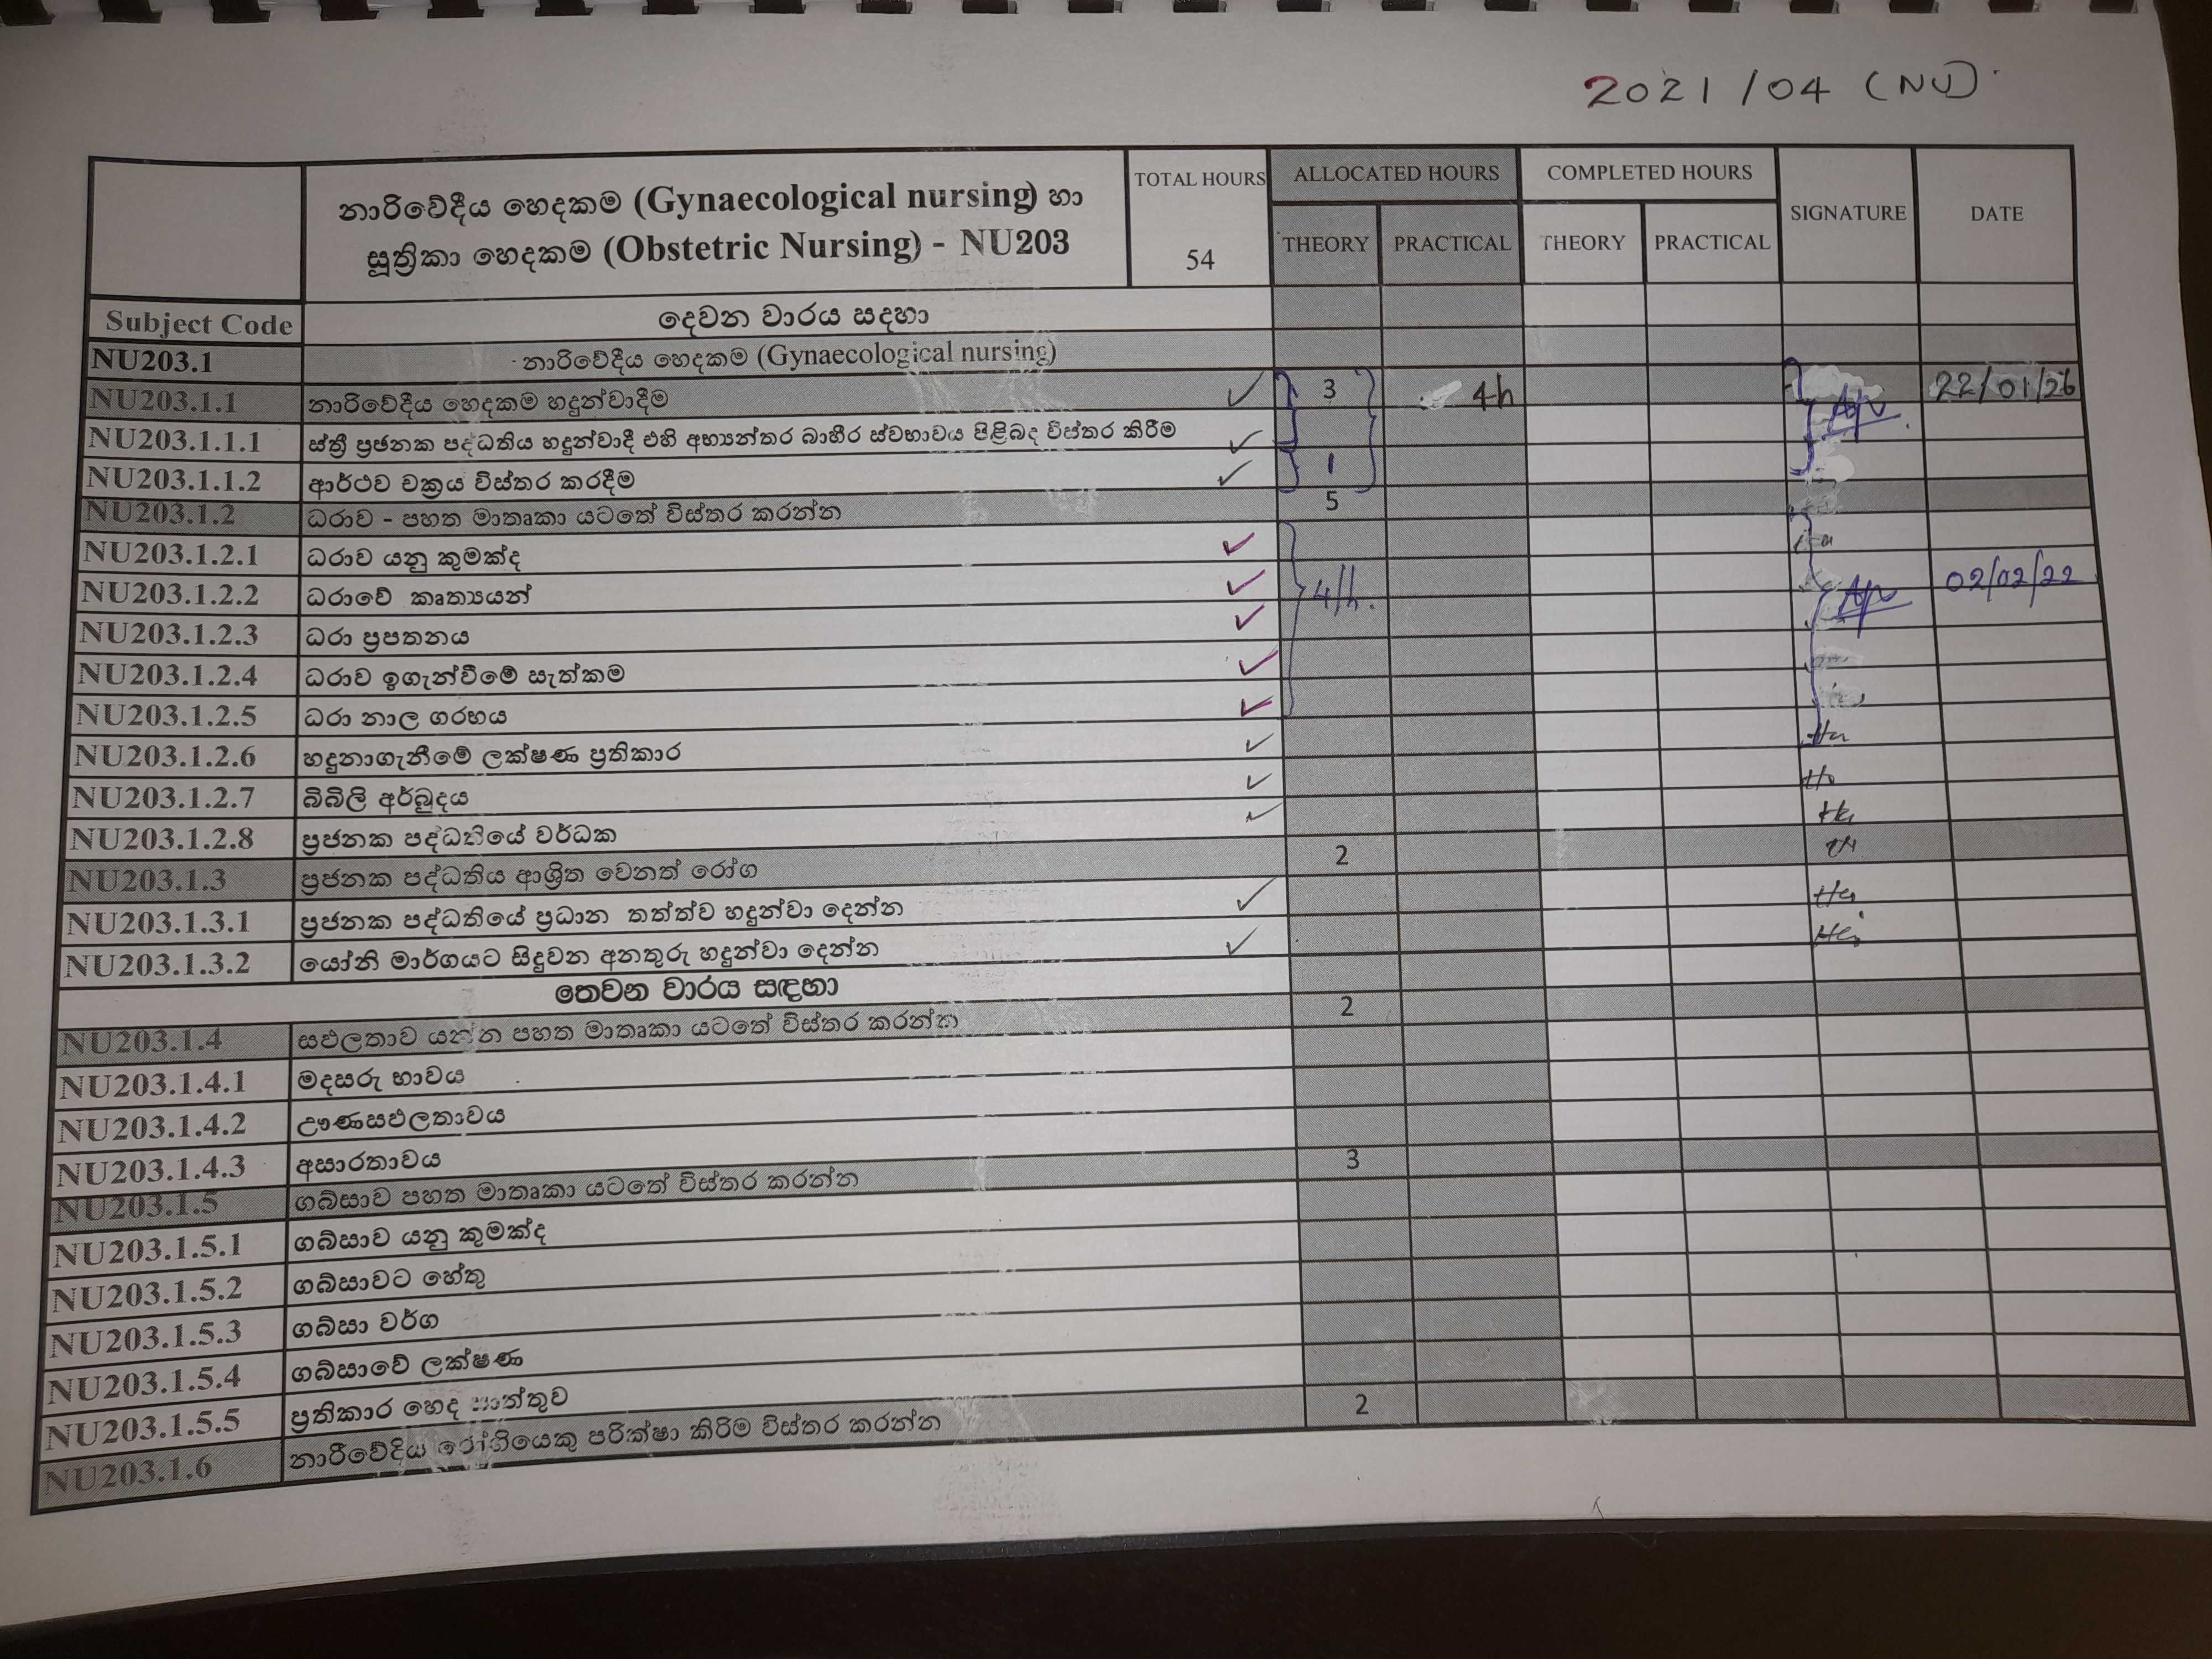 2021/04 (NU)
නාරිවේදීය හෙදකම (Gynaecological nursing) හා
සූත්‍රිකා හෙදකම (Obstetric Nursing) - NU203
TOTAL HOURS
54
ALLOCATED HOURS
COMPLETED HOURS
SIGNATURE
DATE
THEORY PRACTICAL THEORY PRACTICAL
Subject Code දෙවන වාරය සඳහා
NU203.1 නාරිවේදීය හෙදකම (Gynaecological nursing)
NU203.1.1 නාරිවේදීය හෙදකම හදුන්වාදීම 3 4h 22/01/26
NU203.1.1.1 ස්ත්‍රී ප්‍රජනක පද්ධතිය හදුන්වාදී එහි අභ්‍යන්තර බාහිර ස්වභාවය පිළිබද විස්තර කිරීම
NU203.1.1.2 ආර්ථව චක්‍රය විස්තර කරදීම 1
NU203.1.2 ධරාව - පහත මාතෘකා යටතේ විස්තර කරන්න 5
NU203.1.2.1 ධරාව යනු කුමක්ද
NU203.1.2.2 ධරාවේ කෘත්‍යයන් 4/h. 02/02/22
NU203.1.2.3 ධරා ප්‍රපතනය
NU203.1.2.4 ධරාව ඉගැන්වීමේ සැත්කම
NU203.1.2.5 ධරා නාල ගරභය
NU203.1.2.6 හදුනාගැනීමේ ලක්ෂණ ප්‍රතිකාර
NU203.1.2.7 බිබිලි අර්බුදය
NU203.1.2.8 ප්‍රජනක පද්ධතියේ වර්ධක
NU203.1.3 ප්‍රජනක පද්ධතිය ආශ්‍රිත වෙනත් රෝග 2
NU203.1.3.1 ප්‍රජනක පද්ධතියේ ප්‍රධාන තත්ත්ව හදුන්වා දෙන්න
NU203.1.3.2 යෝනි මාර්ගයට සිදුවන අනතුරු හදුන්වා දෙන්න
තෙවන වාරය සඳහා
NU203.1.4 සඵලතාව යන්න පහත මාතෘකා යටතේ විස්තර කරන්න 2
NU203.1.4.1 මදසරු භාවය
NU203.1.4.2 ඌණසඵලතාවය
NU203.1.4.3 අසාරතාවය
NU203.1.5 ගබ්සාව පහත මාතෘකා යටතේ විස්තර කරන්න 3
NU203.1.5.1 ගබ්සාව යනු කුමක්ද
NU203.1.5.2 ගබ්සාවට හේතු
NU203.1.5.3 ගබ්සා වර්ග
NU203.1.5.4 ගබ්සාවේ ලක්ෂණ
NU203.1.5.5 ප්‍රතිකාර හෙද සාත්තුව
NU203.1.6 නාරිවේදීය රෝගියෙකු පරික්ෂා කිරිම විස්තර කරන්න 2